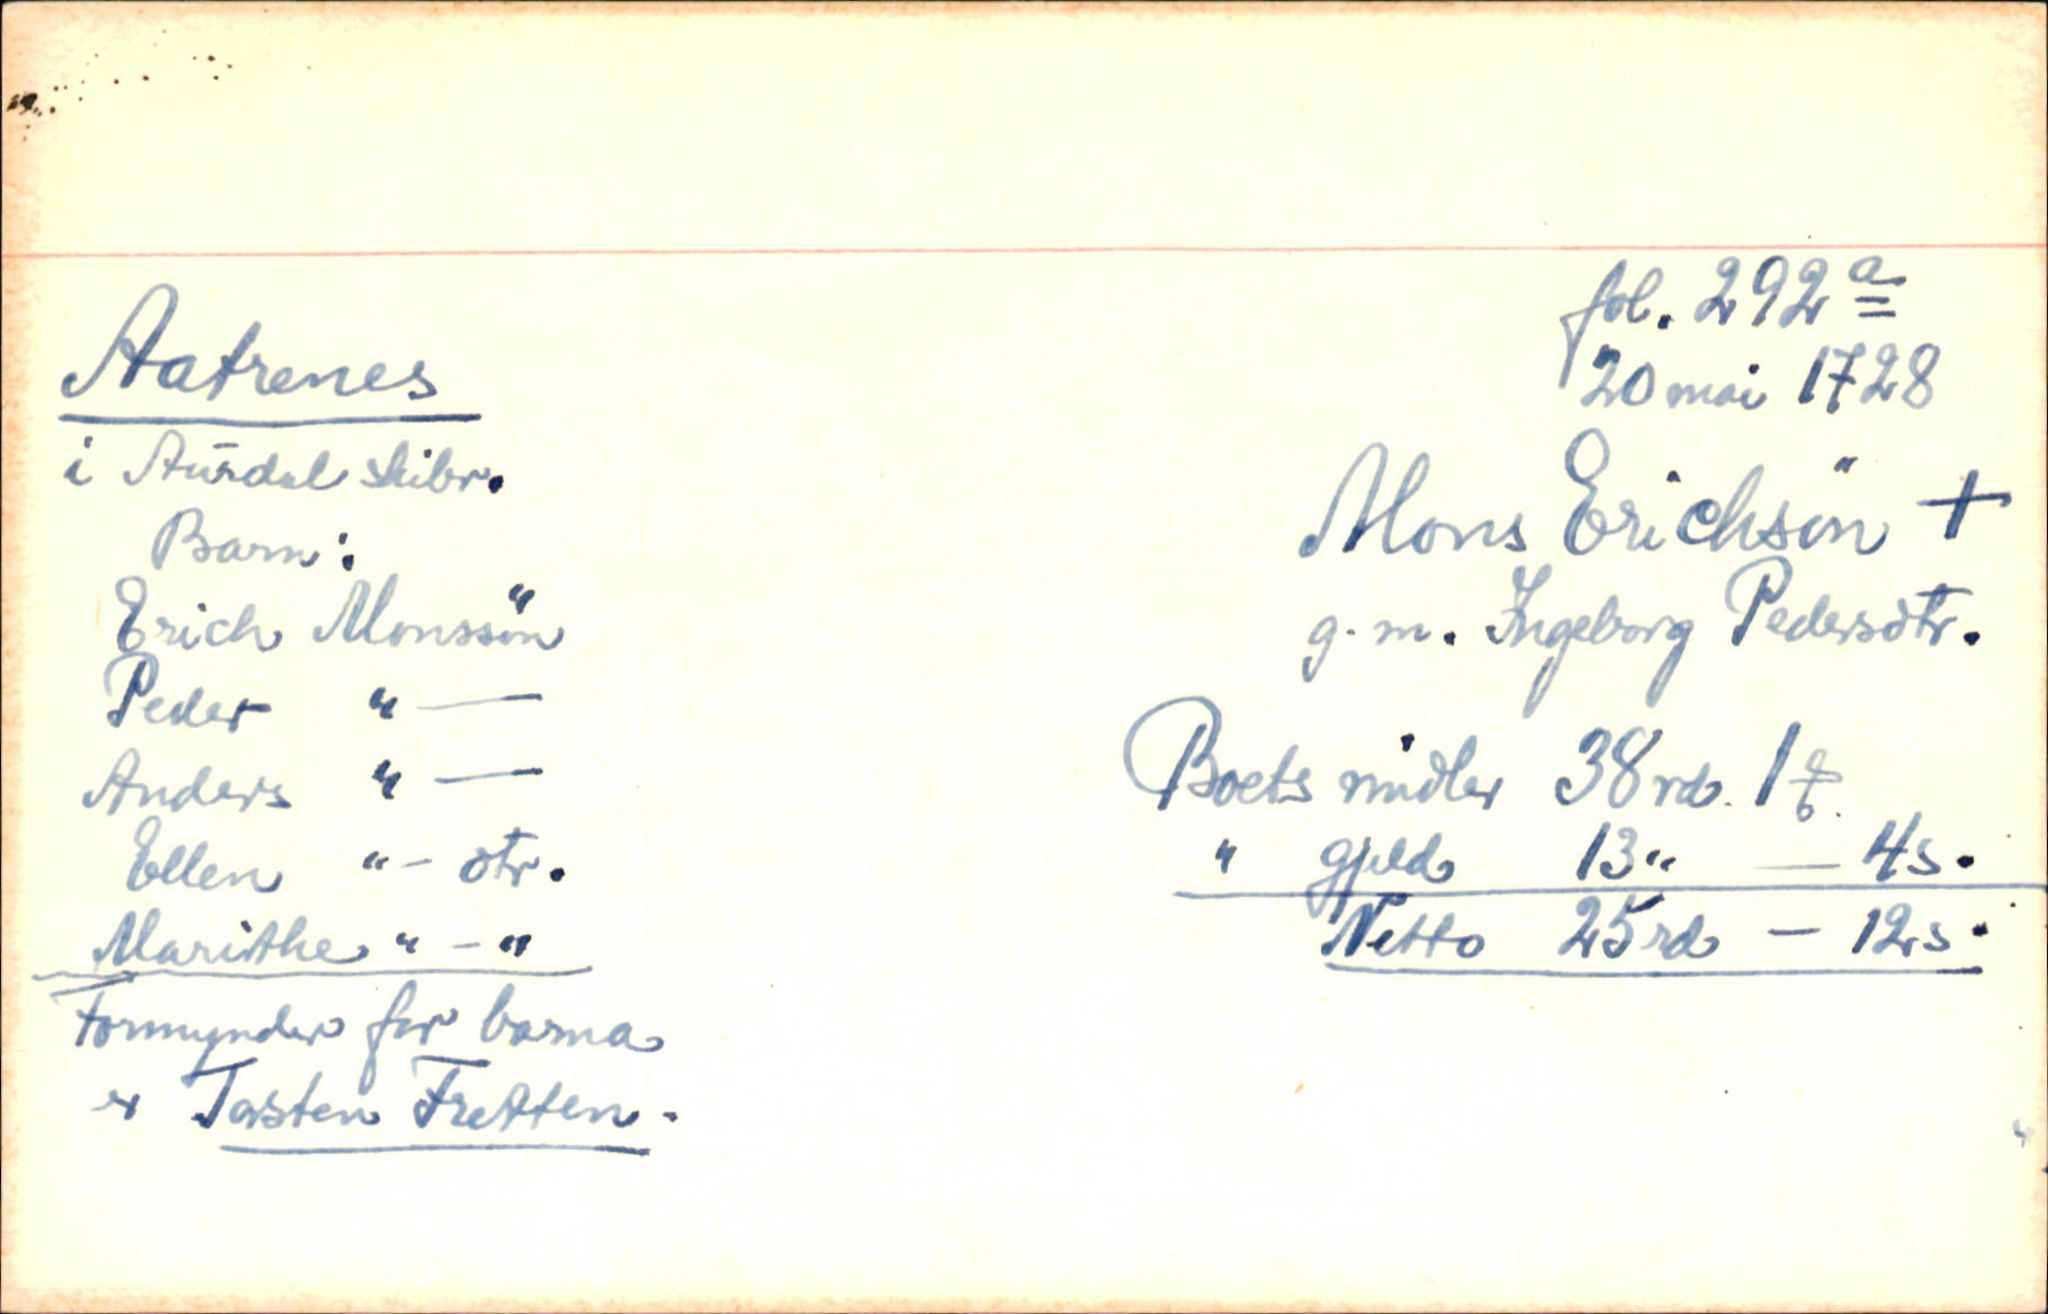 fol. 292 a
20 mai 1728
Aatrenes
i Aurdal skibr.
Mons Erichsön +
g. m. Ingeborg Pedersdtr.
Barn:
Erich Monssön
Peder " —
Anders " —
Ellen " – dtr.
Marithe " – "
Formynder for barna
er Torsten Fretten.
Boets midler 38 rd. 1
" gjeld 13 " — 4 s.
Netto 25 rd – 12 s.